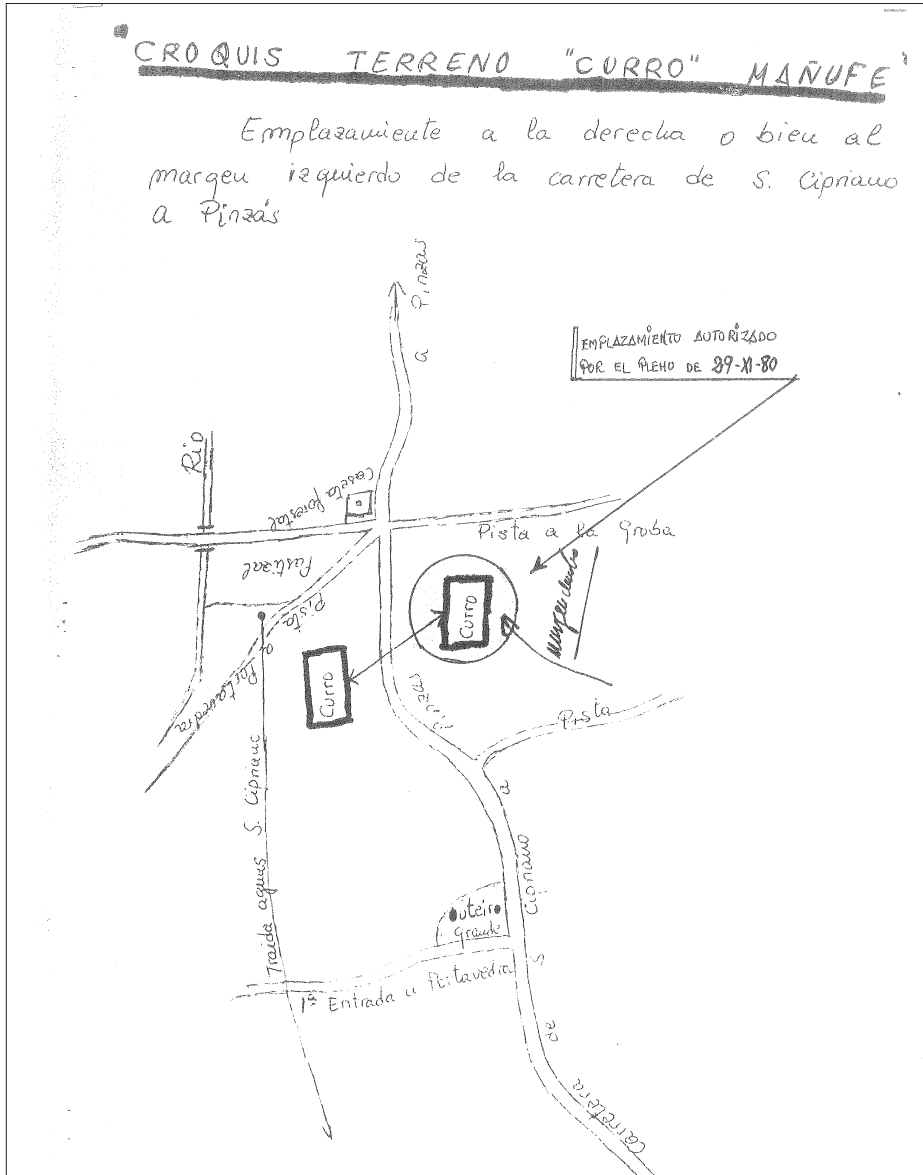 "CROQUIS TERRENO "CURRO" MAÑUFE"
Emplazamiento a la derecha o bien al
margen izquierdo de la carretera de S. Cipriano
a Pinzás
a Pinzás
EMPLAZAMIENTO AUTORIZADO
POR EL PLENO DE 29-XI-80
Rio
Caseta forestal
Pista a la Groba
Pastizal
Pista a Portavedra
Curro
Curro
Pista
Traida aguas S. Cipriano
Outeiro
Grande
1ª Entrada a Portavedra
Carretera de S. Cipriano a Pinzás